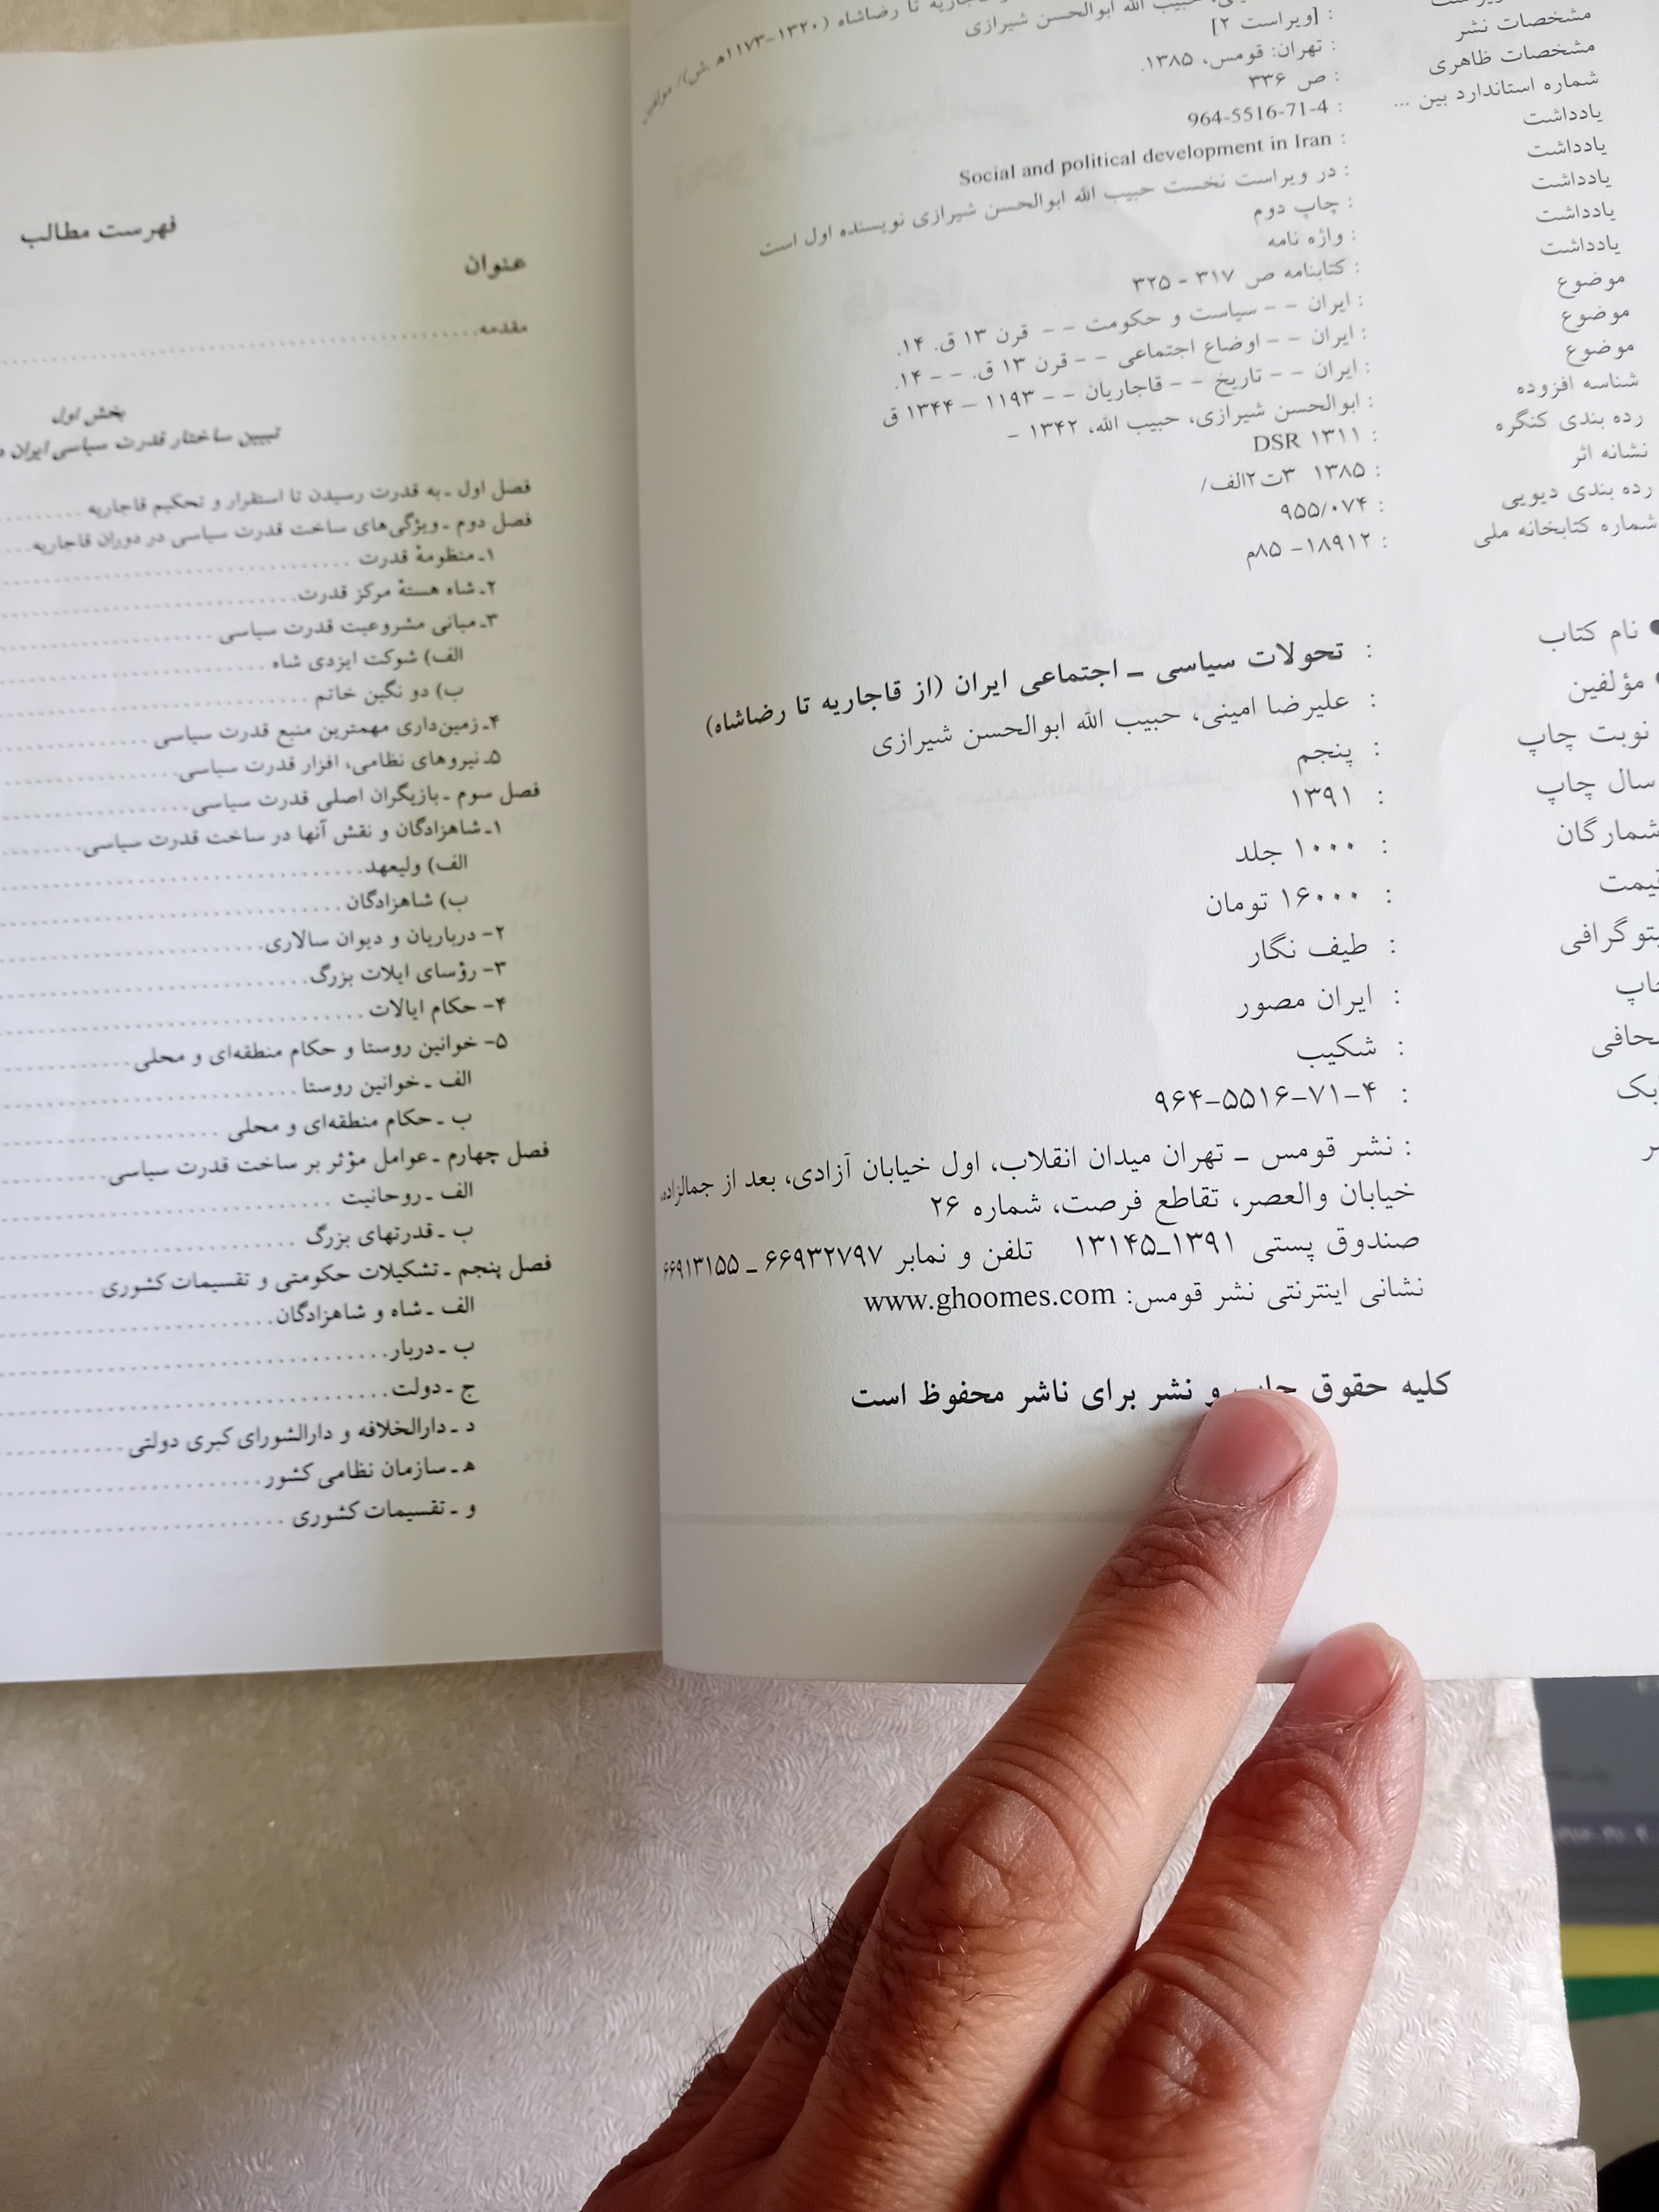 قاجاریه تا رضاشاه (۱۳۲۰-۱۱۷۳ه‍ .ش)/
حبیب الله ابوالحسن شیرازی
: [ویراست ۲]
مشخصات نشر : تهران: قومس، ۱۳۸۵.
مشخصات ظاهری : ص ۳۳۶
شماره استاندارد بین ... : 964-5516-71-4
یادداشت : Social and political development in Iran
یادداشت : در ویراست نخست حبیب الله ابوالحسن شیرازی نویسنده اول است
یادداشت : چاپ دوم
یادداشت : واژه نامه
یادداشت : کتابنامه ص ۳۱۷ - ۳۲۵
موضوع : ایران -- سیاست و حکومت -- قرن ۱۳ ق. ۱۴.
موضوع : ایران -- اوضاع اجتماعی -- قرن ۱۳ ق. -- ۱۴.
موضوع : ایران -- تاریخ -- قاجاریان -- ۱۱۹۳ – ۱۳۴۴ ق
شناسه افزوده : ابوالحسن شیرازی، حبیب الله، ۱۳۴۲ -
رده بندی کنگره : DSR ۱۳۱۱
نشانه اثر : ۱۳۸۵ ۳ت۲الف/
رده بندی دیویی : ۹۵۵/۰۷۴
شماره کتابخانه ملی : ۱۸۹۱۲- ۸۵م
● نام کتاب : تحولات سیاسی ـ اجتماعی ایران (از قاجاریه تا رضاشاه)
● مؤلفین : علیرضا امینی، حبیب الله ابوالحسن شیرازی
نوبت چاپ : پنجم
سال چاپ : ۱۳۹۱
شمارگان : ۱۰۰۰ جلد
قیمت : ۱۶۰۰۰ تومان
: طیف نگار
: ایران مصور
: شکیب
: ۹۶۴-۵۵۱۶-۷۱-۴
: نشر قومس ـ تهران میدان انقلاب، اول خیابان آزادی، بعد از جمالزاده،
خیابان والعصر، تقاطع فرصت، شماره ۲۶
صندوق پستی ۱۳۹۱ـ۱۳۱۴۵ تلفن و نمابر ۶۶۹۳۲۷۹۷ ـ ۶۶۹۱۳۱۵۵
نشانی اینترنتی نشر قومس: www.ghoomes.com
کلیه حقوق چاپ و نشر برای ناشر محفوظ است
فهرست مطالب
عنوان
مقدمه
بخش اول
تبیین ساختار قدرت سیاسی ایران
فصل اول ـ به قدرت رسیدن تا استقرار و تحکیم قاجاریه
فصل دوم ـ ویژگی‌های ساخت قدرت سیاسی در دوران قاجاریه
۱ـ منظومهٔ قدرت
۲ـ شاه هستهٔ مرکز قدرت
۳ـ مبانی مشروعیت قدرت سیاسی
الف) شوکت ایزدی شاه
ب) دو نگین خاتم
۴ـ زمین‌داری مهمترین منبع قدرت سیاسی
۵ـ نیروهای نظامی، افزار قدرت سیاسی
فصل سوم ـ بازیگران اصلی قدرت سیاسی
۱ـ شاهزادگان و نقش آنها در ساخت قدرت سیاسی
الف) ولیعهد
ب) شاهزادگان
۲- درباریان و دیوان سالاری
۳- رؤسای ایلات بزرگ
۴- حکام ایالات
۵- خوانین روستا و حکام منطقه‌ای و محلی
الف ـ خوانین روستا
ب ـ حکام منطقه‌ای و محلی
فصل چهارم ـ عوامل مؤثر بر ساخت قدرت سیاسی
الف ـ روحانیت
ب ـ قدرتهای بزرگ
فصل پنجم ـ تشکیلات حکومتی و تقسیمات کشوری
الف ـ شاه و شاهزادگان
ب ـ دربار
ج ـ دولت
د ـ دارالخلافه و دارالشورای کبری دولتی
ه‍ ـ سازمان نظامی کشور
و ـ تقسیمات کشوری